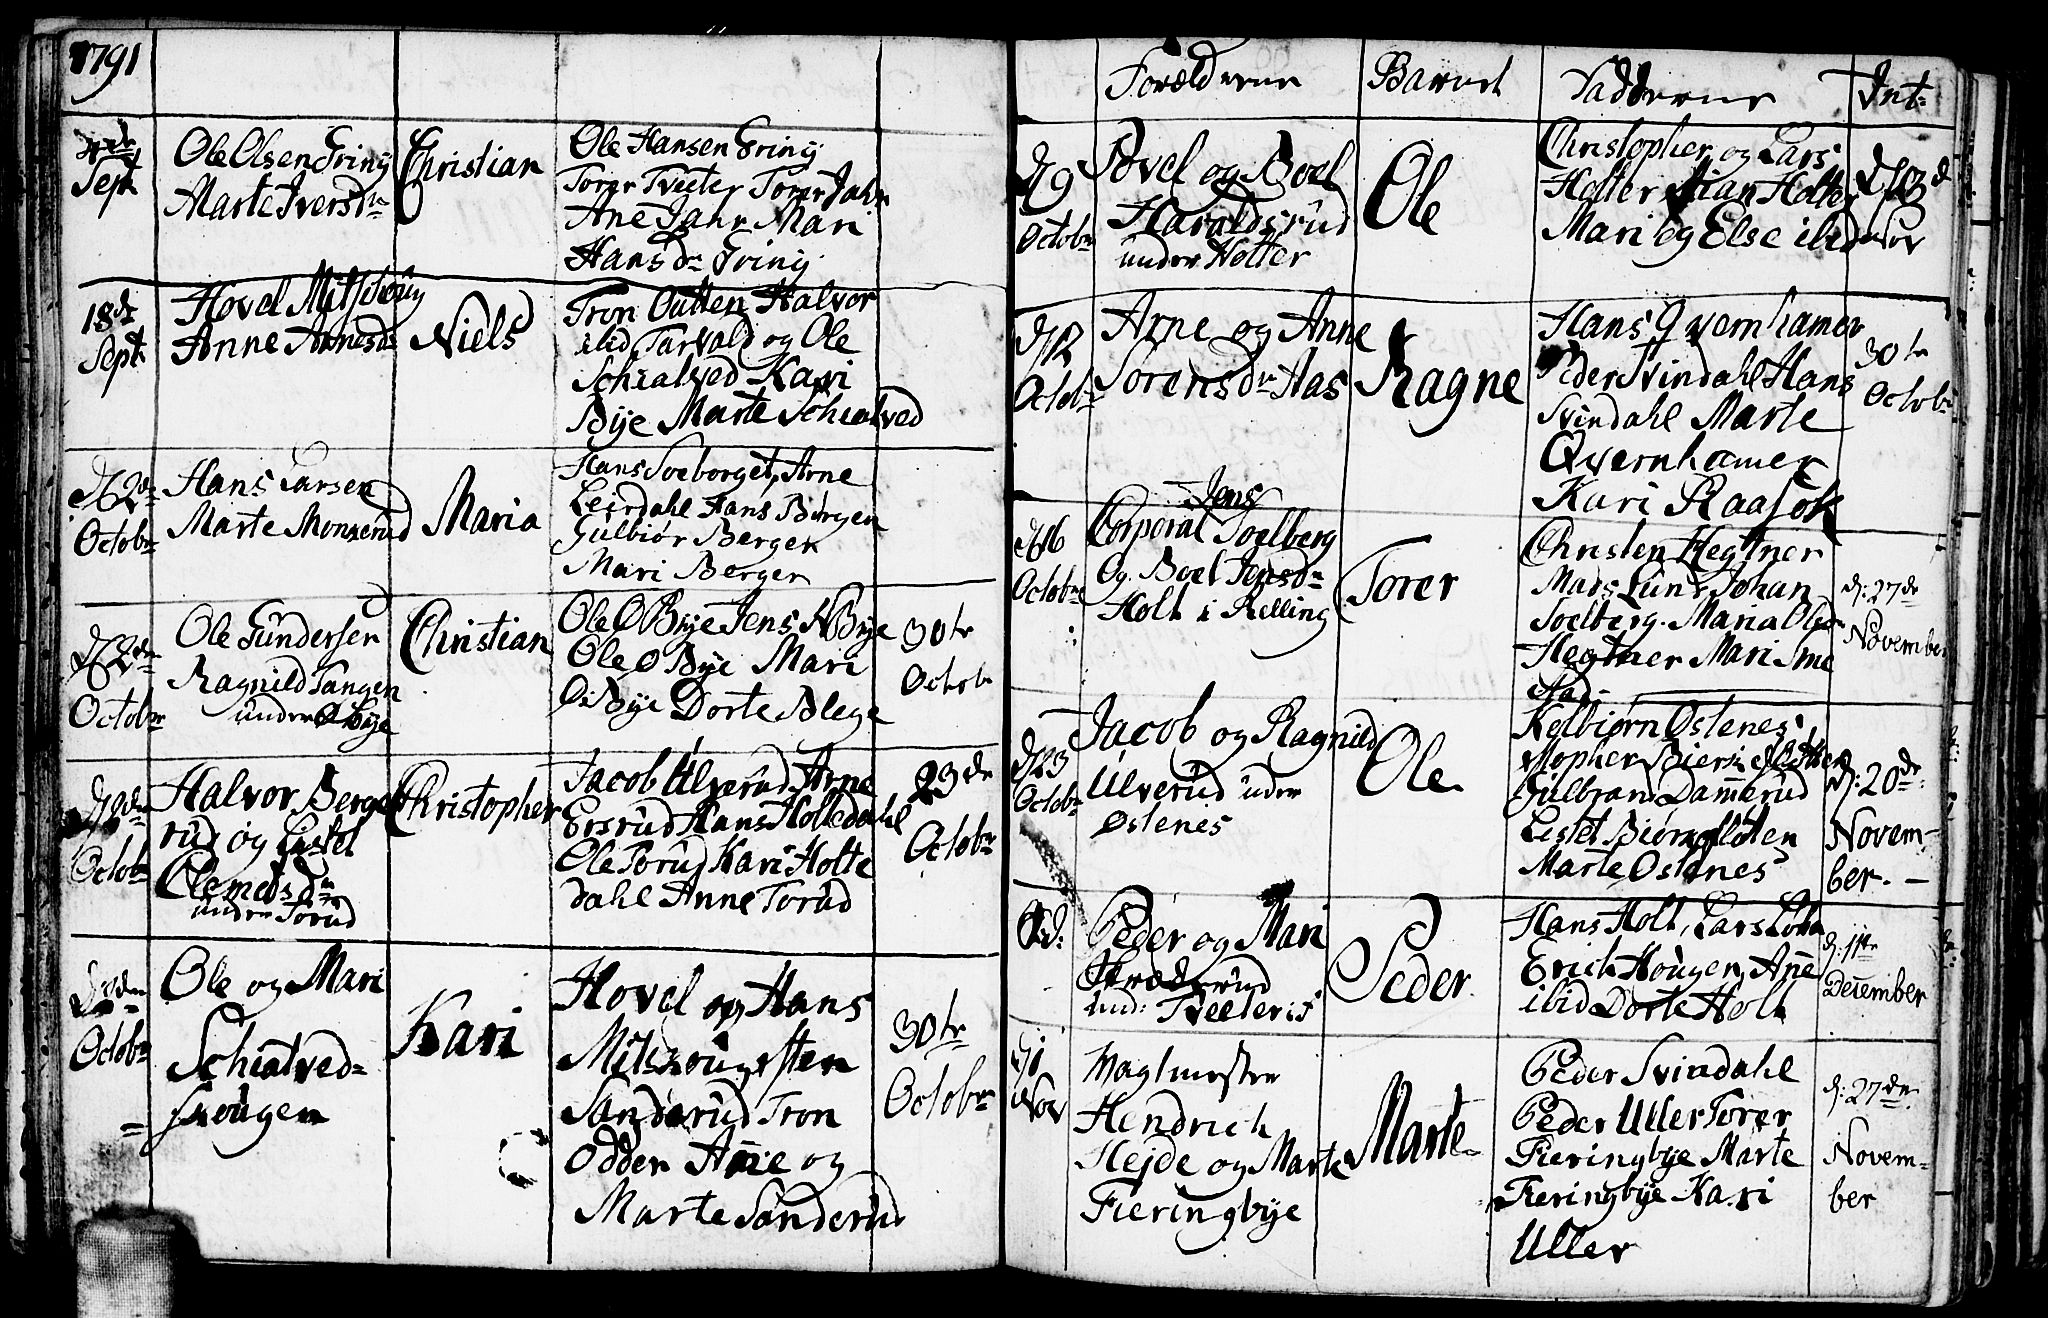 1791
4de
Sept
Ole Olsen Gring
Marte Iversdr
Christian
Ole Hansen Gring
Torer Tveter Torer Jahr
Ane Jahr Mari
Hansdr Gring
18de
Sept
Hovel Mitschoug
Anne Arnesdr
Niels
Tron Outten Halvor
ibid Tarvald og Ole
Schiatved Kari
Bye Marte Schiatved
d 2den
Octobr
Hans Larsen
Marte Monserud
Maria
Hans Soeborget, Arne
Leirdahl Hans Børgen
Gulbiør Berger
Mari Berger
d 2den
Octobr
Ole Gundersen
Ragnild Tangen
under Ø Bye
Christian
Ole Ø Bye Jens N Bye
Ole Ø Bye Mari
Ø Bye Dorte Blege
30te
Octobr
d 9den
Octobr
Halvor Berge
rud og Listel
Clemetsdr
under Torud
Christopher
Jacob Ulverud Arne
Ersrud Hans Holtedahl
Ole Torud Kari Holte
dahl Anne Torud
23de
Octobr
Octobr
Ole og Mari
Schiatved-
skougen
Kari
Hovel og Hans
Mitskoug Sten
Sanderud Tron
Odden Ane og
Marte Sanderud
30te
Octobr
Forældrene
Barnet
Fadderne
Int:
d 9
Octobr
Povel og Boel
Haraldsrud
under Holter
Ole
Christopher og Lars
Holter Holter
Mari og Else ibid
d 13d
Nov
d 12
Octobr
Arne og Anne
Sørensdr Aas
Ragne
Hans Qvernhamer
Peder Svindahl Hans
Svindahl Marte
Qvernhamer
Kari Raasok
30te
Octobr
d 16
Octobr
Jens
Corporal Soelberg
Og Boel Jensdr
Holt i Relling
Torer
Christen Hegtner
Mads Lund Johan
Soelberg Maria Olsdr
Hegtner Mari Sme
stad
d: 27de
November
d 23
Octobr
Jacob og Ragnild
Ulverud under
Østenes
Ole
Kolbiørn Østenes
stopher
Gulbrand Dammerud
Listet Biørnefloten
Marte Østenes
d: 20de
Novem-
ber. -
Peder og Mari
Skræderud
und: Tveeter
Peder
Hans Holt, Lars
Erich Hougen, Ane
ibid Dorte Holt
d: 11te
December
d 1
Nov
Wagtmester
Hendrich
Hejde og Marte
Fieringbye
Marte
Peder Svindahl
Peder Uller Torer
Fieringbye Marte
Fieringbye Kari
Uller
d: 27de
Novem-
ber